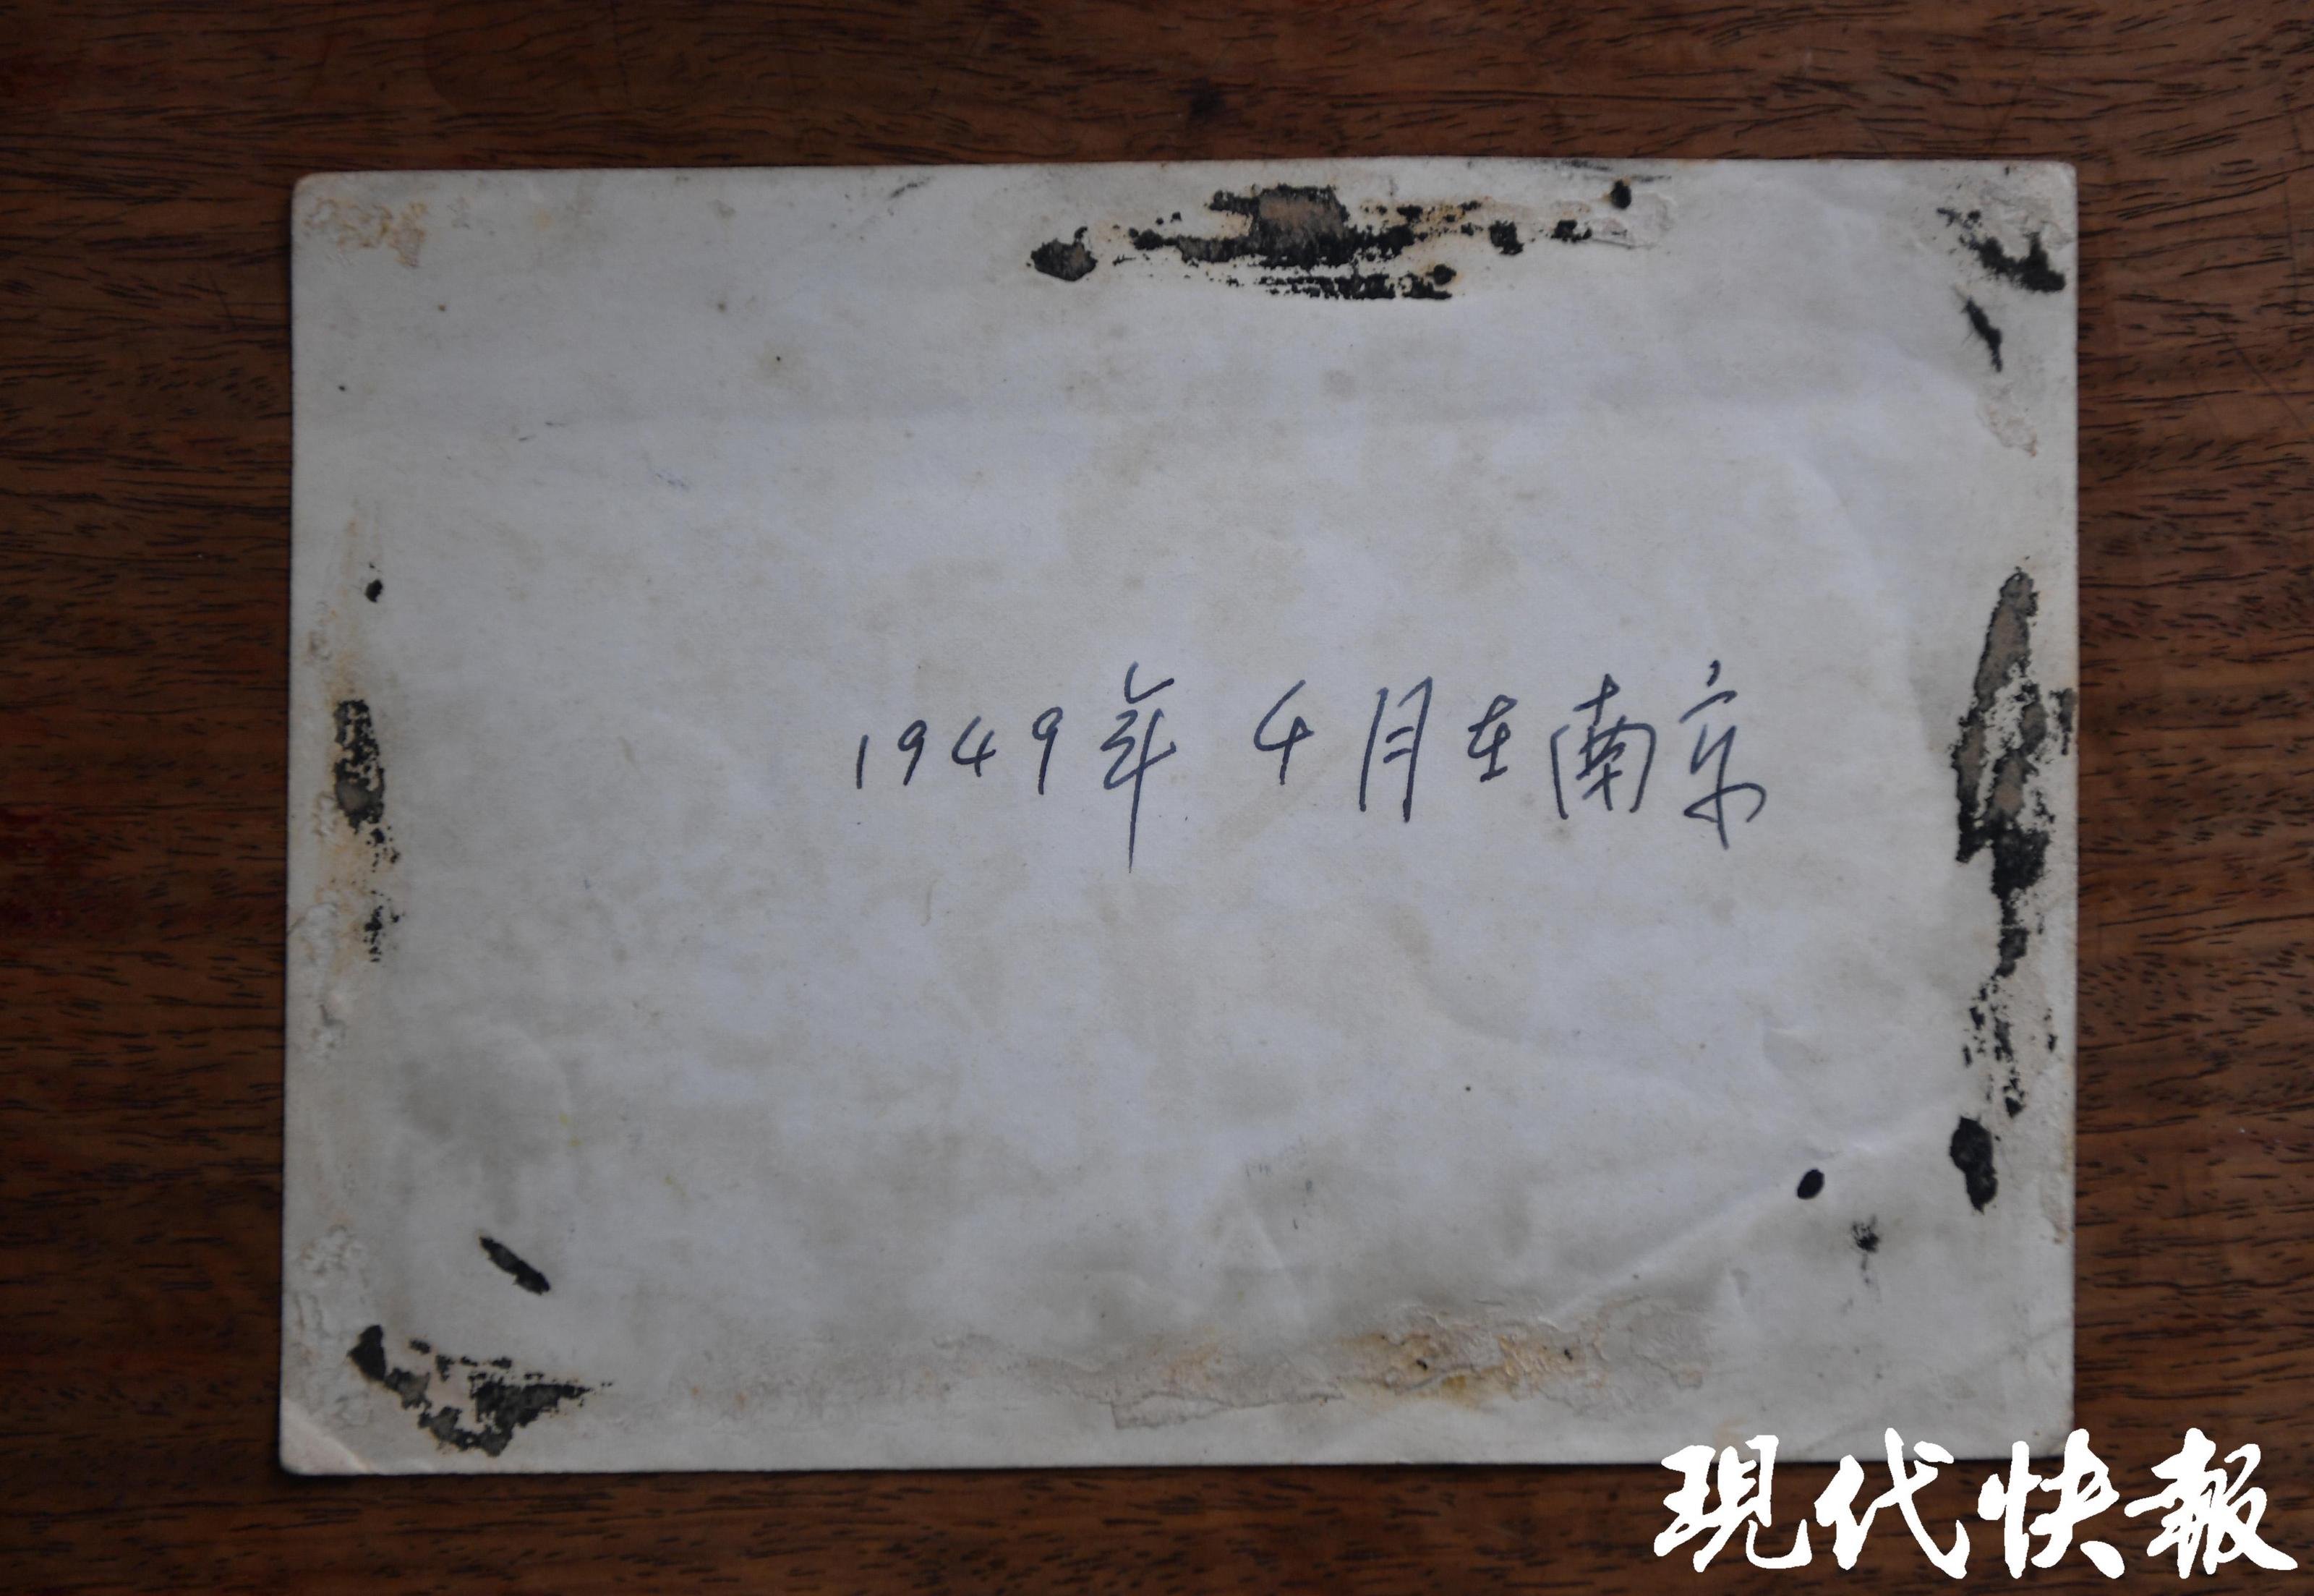 1949年4月在南京
現代快報